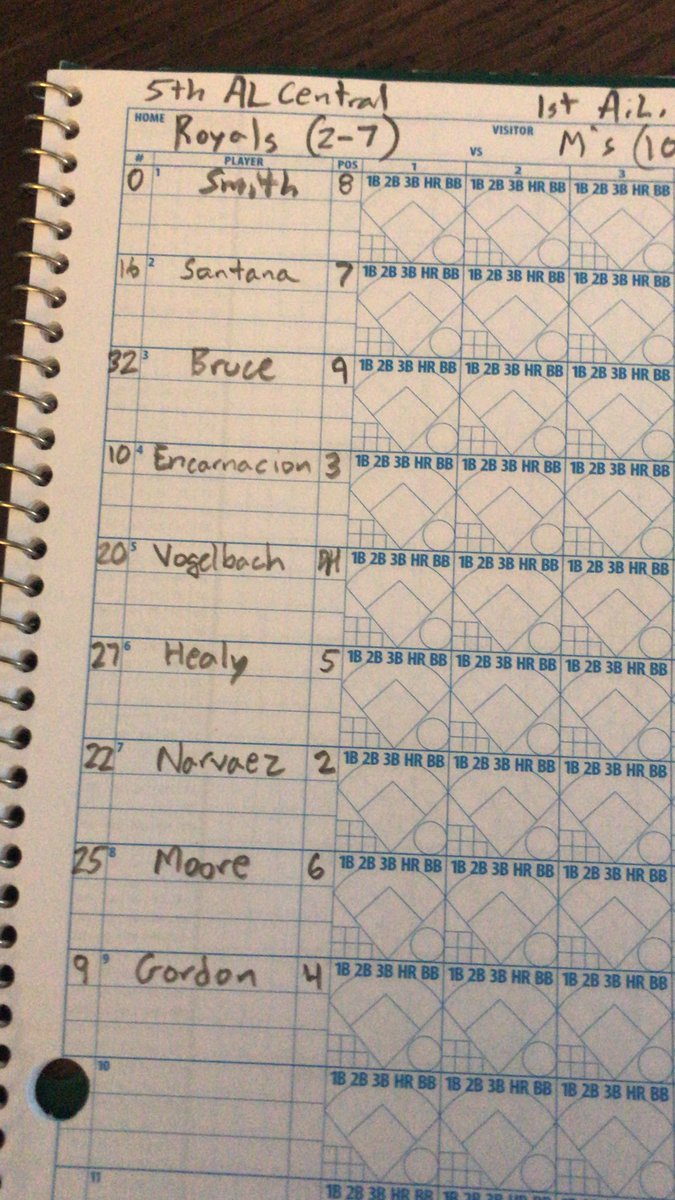 5th AL Central 1st A.L.
HOME Royals (2-7) VS VISITOR M's (10
# PLAYER POS 1 2 3
0 1 Smith 8 1B 2B 3B HR BB 1B 2B 3B HR BB 1B 2B 3B HR BB
16 2 Santana 7 1B 2B 3B HR BB 1B 2B 3B HR BB 1B 2B 3B HR BB
32 3 Bruce 9 1B 2B 3B HR BB 1B 2B 3B HR BB 1B 2B 3B HR BB
10 4 Encarnacion 3 1B 2B 3B HR BB 1B 2B 3B HR BB 1B 2B 3B HR BB
20 5 Vogelbach DH 1B 2B 3B HR BB 1B 2B 3B HR BB 1B 2B 3B HR BB
27 6 Healy 5 1B 2B 3B HR BB 1B 2B 3B HR BB 1B 2B 3B HR BB
22 7 Narvaez 2 1B 2B 3B HR BB 1B 2B 3B HR BB 1B 2B 3B HR BB
25 8 Moore 6 1B 2B 3B HR BB 1B 2B 3B HR BB 1B 2B 3B HR BB
9 9 Gordon 4 1B 2B 3B HR BB 1B 2B 3B HR BB 1B 2B 3B HR BB
10 1B 2B 3B HR BB 1B 2B 3B HR BB 1B 2B 3B HR BB
11 1B 2B 3B HR BB 1B 2B 3B HR BB 1B 2B 3B HR